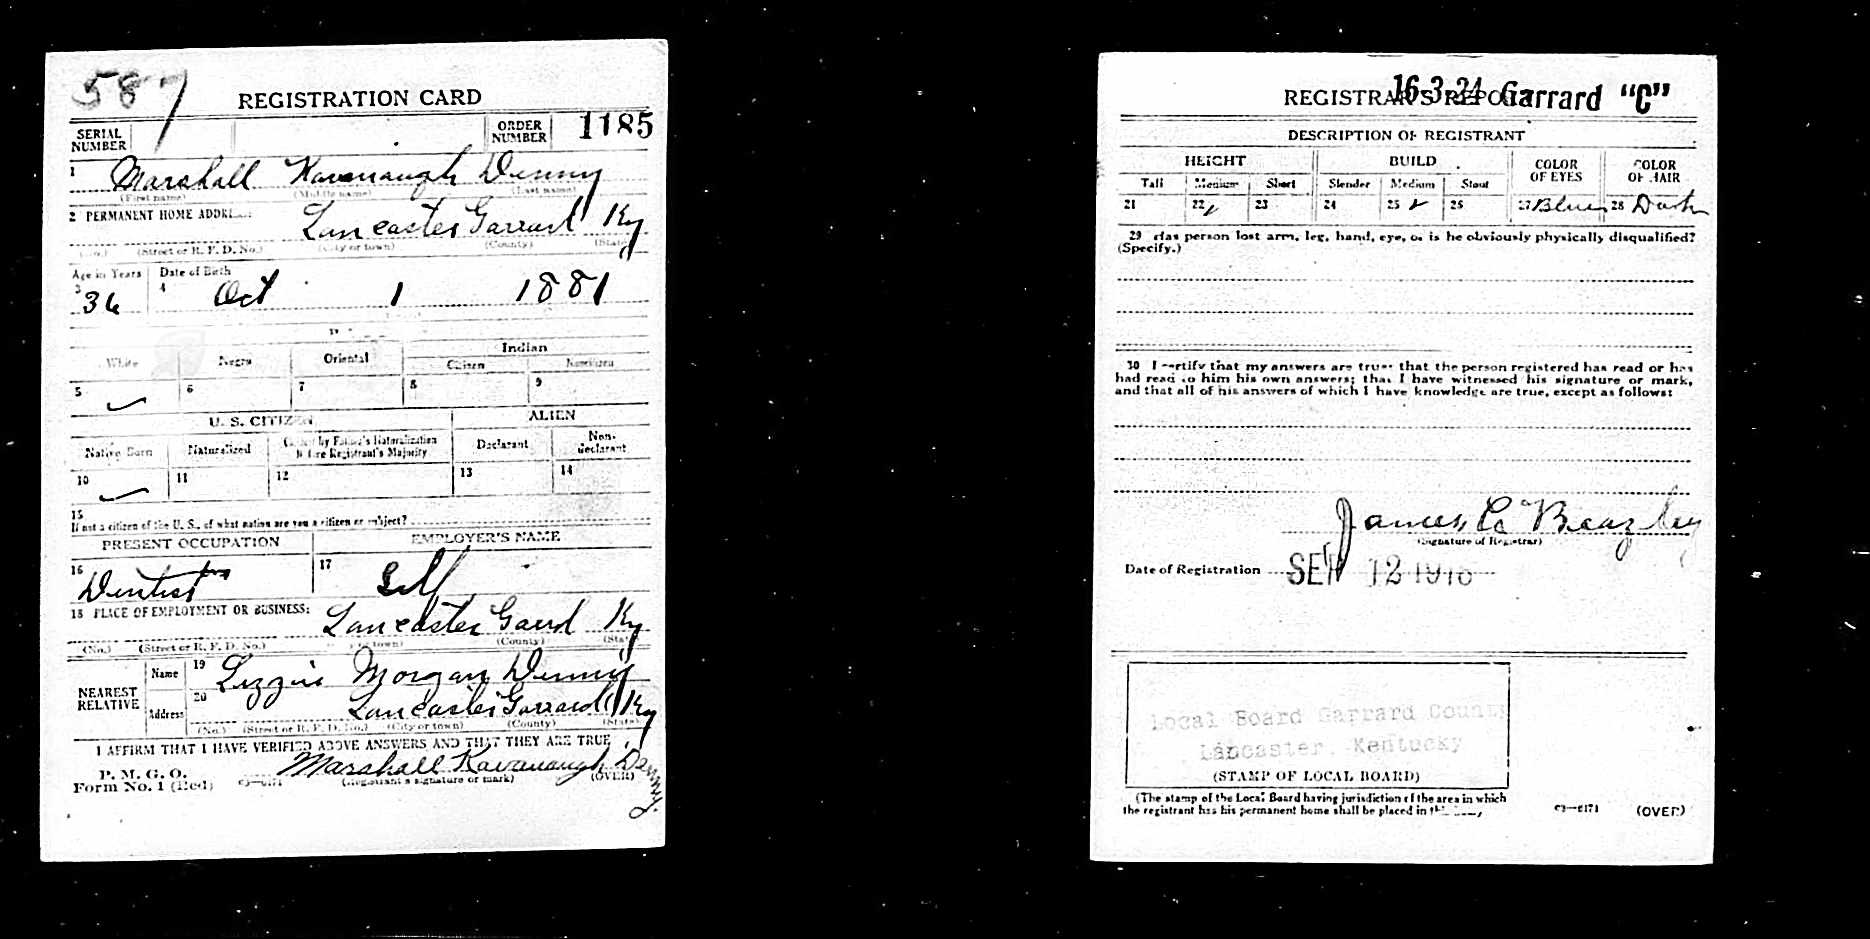 587
REGISTRATION CARD
SERIAL NUMBER
ORDER NUMBER 1185
1 Marshall Kavanaugh Denny
(First name) (Middle name) (Last name)
2 PERMANENT HOME ADDRESS:
Lancaster Garrard Ky
(No.) (Street or R. F. D. No.) (City or town) (County) (State)
Age in Years Date of Birth
3 36 4 Oct 1 1881
White Negro Oriental Indian
Citizen Noncitizen
5 ✓ 6 7 8 9
U. S. CITIZEN ALIEN
Native Born Naturalized Citizen by Father's Naturalization Before Registrant's Majority Declarant Non-declarant
10 ✓ 11 12 13 14
15
If not a citizen of the U. S., of what nation are you a citizen or subject?
PRESENT OCCUPATION EMPLOYER'S NAME
16 Dentist 17 Self
18 PLACE OF EMPLOYMENT OR BUSINESS:
Lancaster Garrd Ky
(No.) (Street or R. F. D. No.) (City or town) (County) (State)
NEAREST RELATIVE
Name 19 Lizzie Morgan Denny
Address 20 Lancaster Garrard Ky
(No.) (Street or R. F. D. No.) (City or town) (County) (State)
I AFFIRM THAT I HAVE VERIFIED ABOVE ANSWERS AND THAT THEY ARE TRUE
P. M. G. O.
Form No. 1 (Red) 03—6171 Marshall Kavanaugh Denny.
(Registrant's signature or mark) (OVER)
REGISTRAR'S REPORT 16-3-24 Garrard "C"
DESCRIPTION OF REGISTRANT
HEIGHT BUILD COLOR OF EYES COLOR OF HAIR
Tall Medium Short Slender Medium Stout
21 22 ✓ 23 24 25 ✓ 26 27 Blue 28 Dark
29 Has person lost arm, leg, hand, eye, or is he obviously physically disqualified?
(Specify.)
30 I certify that my answers are true; that the person registered has read or has
had read to him his own answers; that I have witnessed his signature or mark,
and that all of his answers of which I have knowledge are true, except as follows:
James C Beazley
(Signature of Registrar)
Date of Registration SEP 12 1918
Local Board Garrard County
Lancaster, Kentucky
(STAMP OF LOCAL BOARD)
(The stamp of the Local Board having jurisdiction of the area in which
the registrant has his permanent home shall be placed in this
03—6171 (OVER)